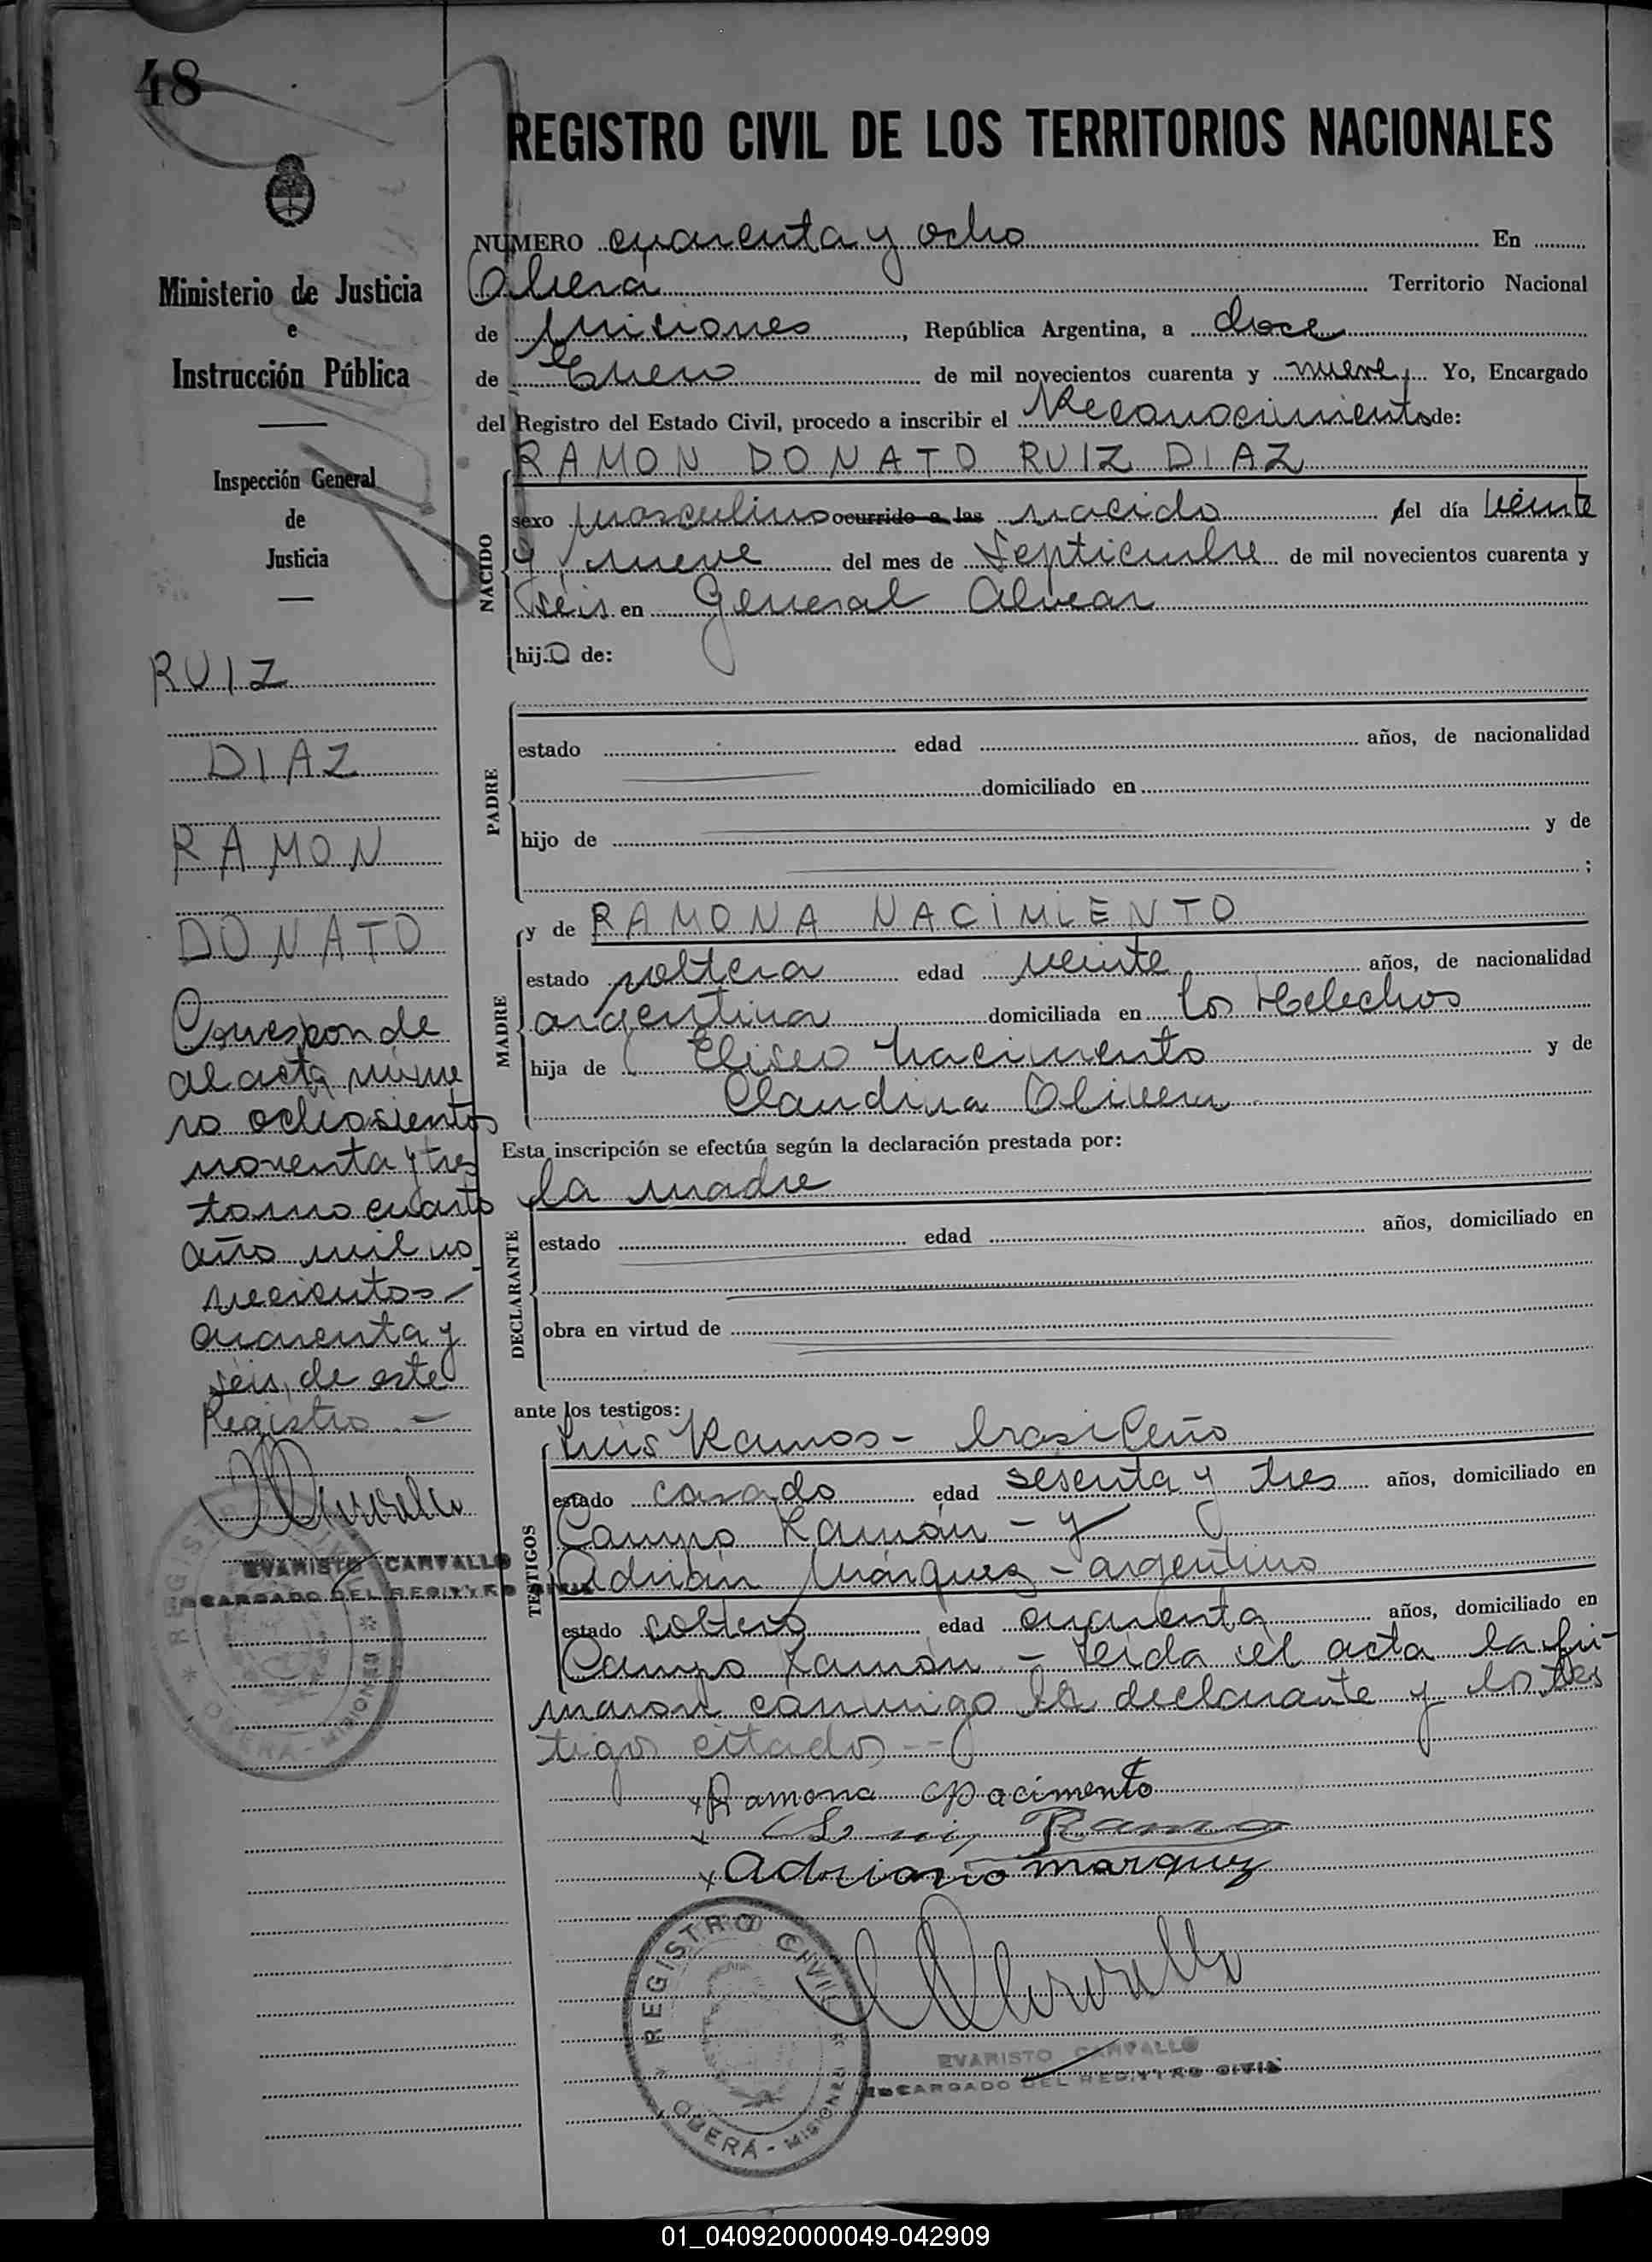 48
REGISTRO CIVIL DE LOS TERRITORIOS NACIONALES
Ministerio de Justicia
e
Instrucción Pública
Inspección General
de
Justicia
RUIZ
DIAZ
RAMON
DONATO
Corresponde
al acta núme
ro ochosientos
noventa y tres
tomo cuarto
año mil no
vecientos
cuarenta y
seis, de este
Registro.-
EVARISTO CARVALLO
ENCARGADO DEL REGISTRO CIVIL
REGISTRO CIVIL
OBERÁ - MISIONES
NUMERO cuarenta y ocho En
Oberá Territorio Nacional
de Misiones, República Argentina, a doce
de Enero de mil novecientos cuarenta y nueve, Yo, Encargado
del Registro del Estado Civil, procedo a inscribir el Reconocimiento de:
RAMON DONATO RUIZ DIAZ
NACIDO
sexo masculino ocurrido a las nacido del día veinte
y nueve del mes de Septiembre de mil novecientos cuarenta y
seis en General Alvear
hijo de:
PADRE
estado edad años, de nacionalidad
domiciliado en
hijo de y de
;
MADRE
y de RAMONA NACIMIENTO
estado soltera edad veinte años, de nacionalidad
argentina domiciliada en Los Helechos
hija de Eliseo Nacimento y de
Claudina Olivera
Esta inscripción se efectúa según la declaración prestada por:
la madre
DECLARANTE
estado edad años, domiciliado en
obra en virtud de
ante los testigos:
TESTIGOS
Luis Ramos - brasileño
estado casado edad sesenta y tres años, domiciliado en
Campo Ramón - y
Adrián Márquez - argentino
estado soltero edad cuarenta años, domiciliado en
Campo Ramón - Leida el acta la fir-
maron conmigo la declarante y los tes
tigos citados --
x Ramona Nacimento
x Luis Ramo
x Adriano marquez
REGISTRO CIVIL
OBERÁ - MISIONES
EVARISTO CARVALLO
ENCARGADO DEL REGISTRO CIVIL
01_040920000049-042909